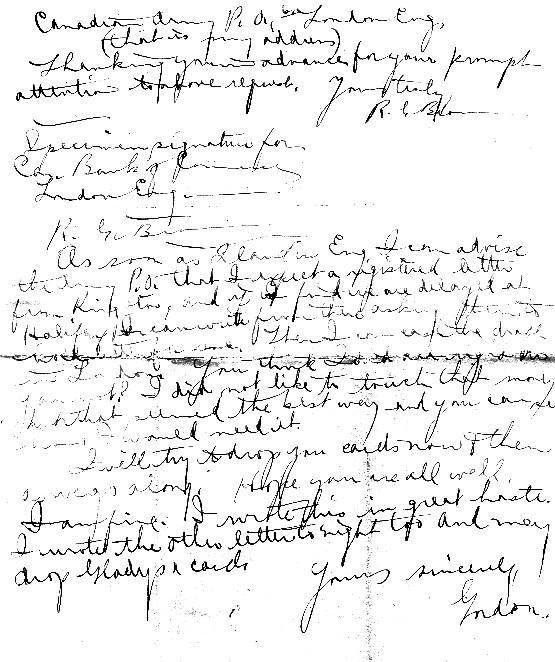 Canadian Army P.O., London Eng,
(that is my address)
Thanking you in advance for your prompt
attention to above request. Yours truly
R. G. B
Specimen signature for
Can. Bank of Commerce
London Eng.
R. G. B
As soon as I land in Eng. I can advise
the Army P.O. that I expect a registered letter
from Kingston, and if I find we are delayed at
Halifax I can write from there asking them to
Then I can cash the draft
in London. You think so
I did not like to touch that money
that seemed the best way and you
I would need it.
I will try to drop you cards now & then
as we go along. Hope you are all well.
I am fine. I wrote this in great haste.
I wrote the other letter tonight too and may
drop Gladys a card
Yours sincerely,
Gordon.